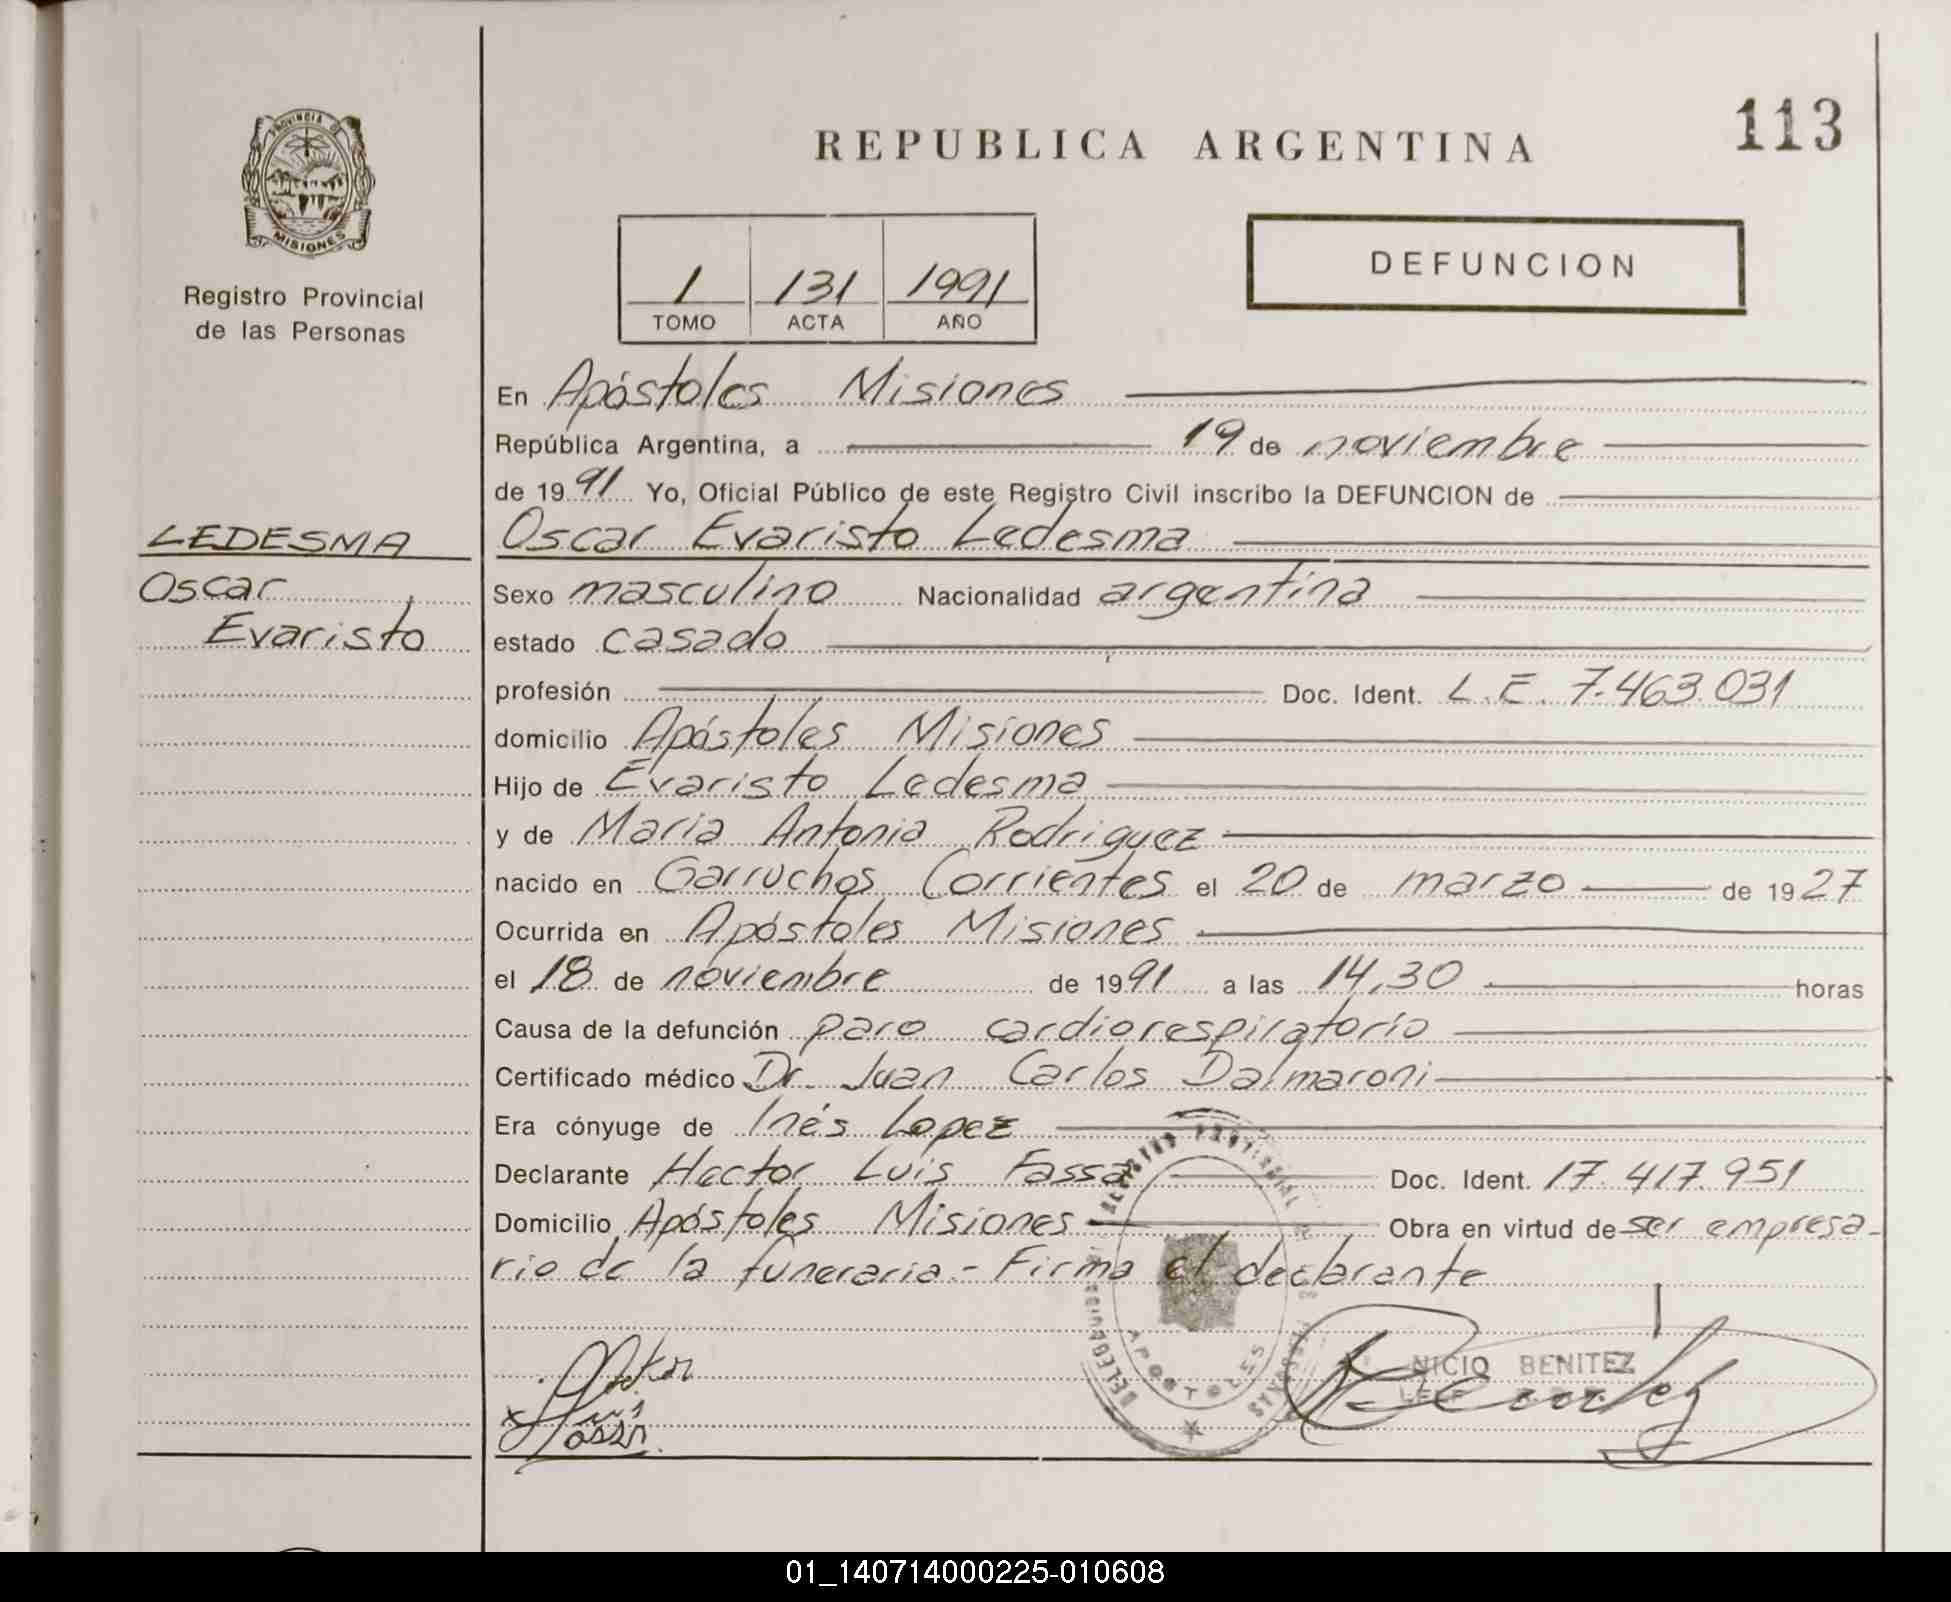 PROVINCIA DE
MISIONES
Registro Provincial
de las Personas
REPUBLICA ARGENTINA
113
1 131 1991
TOMO ACTA AÑO
DEFUNCION
En Apóstoles Misiones
República Argentina, a 19 de noviembre
de 1991 Yo, Oficial Público de este Registro Civil inscribo la DEFUNCION de
LEDESMA
Oscar
Evaristo
Oscar Evaristo Ledesma
Sexo masculino Nacionalidad argentina
estado casado
profesión Doc. Ident. L.E. 7.463.031
domicilio Apóstoles Misiones
Hijo de Evaristo Ledesma
y de Maria Antonia Rodriguez
nacido en Garruchos Corrientes el 20 de marzo de 1927
Ocurrida en Apóstoles Misiones
el 18 de noviembre de 1991 a las 14,30 horas
Causa de la defunción paro cardiorespiratorio
Certificado médico Dr. Juan Carlos Dalmaroni
Era cónyuge de Inés Lopez
Declarante Hector Luis Fassa Doc. Ident. 17.417.951
Domicilio Apóstoles Misiones Obra en virtud de ser empresa-
rio de la funeraria.- Firma el declarante
APOSTOLES
NICIO BENITEZ
01_140714000225-010608